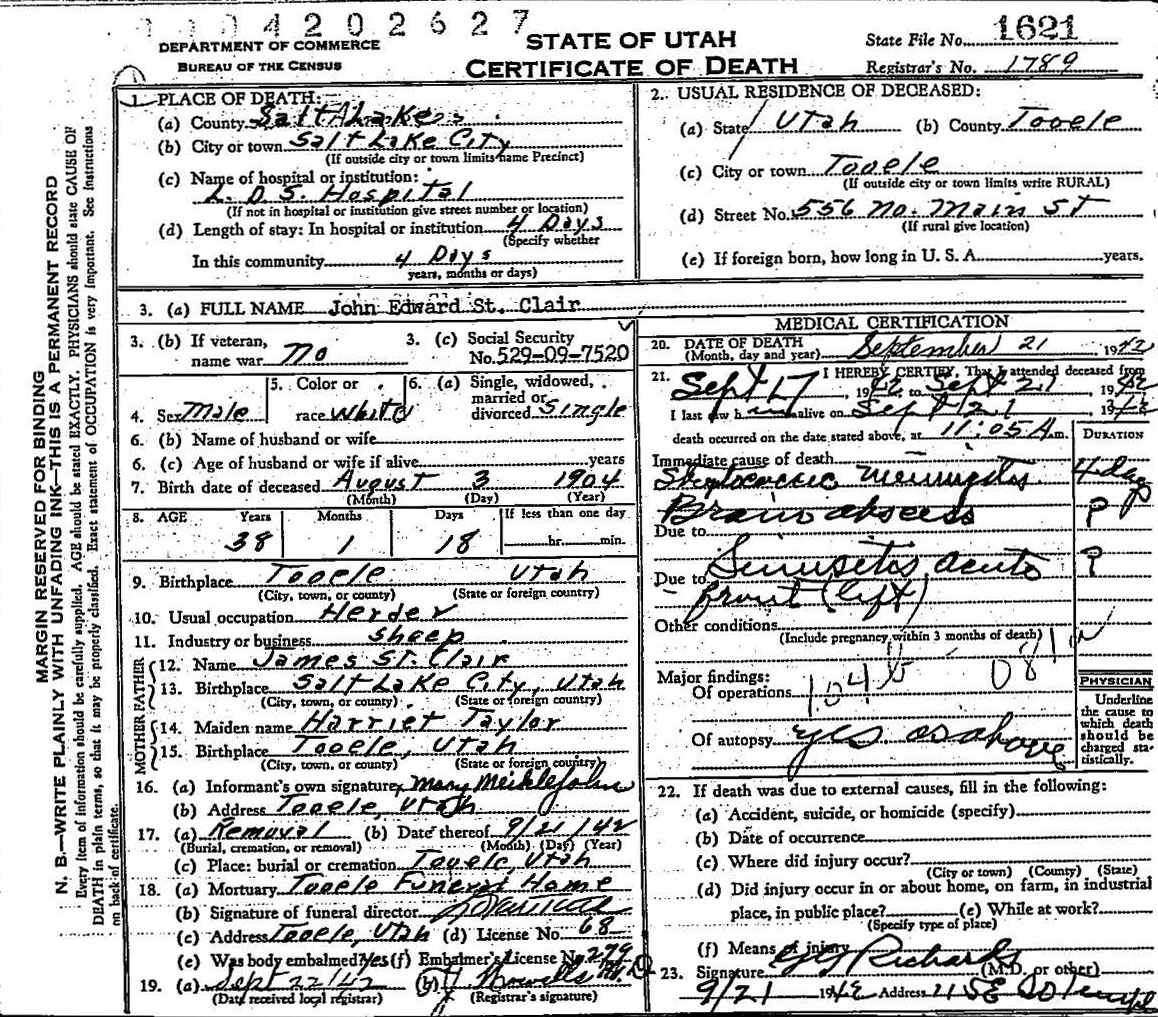 0004202627
1621
DEPARTMENT OF COMMERCE
BUREAU OF THE CENSUS
STATE OF UTAH
CERTIFICATE OF DEATH
State File No. 1621
Registrar's No. 1789
MARGIN RESERVED FOR BINDING
N. B.—WRITE PLAINLY WITH UNFADING INK—THIS IS A PERMANENT RECORD
Every item of information should be carefully supplied. AGE should be stated EXACTLY. PHYSICIANS should state CAUSE OF
DEATH in plain terms, so that it may be properly classified. Exact statement of OCCUPATION is very important. See instructions
on back of certificate.
1. PLACE OF DEATH:
(a) County Salt Lake
(b) City or town Salt Lake City
(If outside city or town limits name Precinct)
(c) Name of hospital or institution:
L. D. S. Hospital
(If not in hospital or institution give street number or location)
(d) Length of stay: In hospital or institution 4 Days
(Specify whether
In this community 4 Days
years, months or days)
2. USUAL RESIDENCE OF DECEASED:
(a) State Utah (b) County Tooele
(c) City or town Tooele
(If outside city or town limits write RURAL)
(d) Street No. 556 No. Main St
(If rural give location)
(e) If foreign born, how long in U. S. A. years.
3. (a) FULL NAME John Edward St. Clair
3. (b) If veteran,
name war No
3. (c) Social Security
No. 529-09-7520
4. Sex Male
5. Color or
race White
6. (a) Single, widowed,
married or
divorced Single
6. (b) Name of husband or wife
6. (c) Age of husband or wife if alive years
7. Birth date of deceased August 3 1904
(Month) (Day) (Year)
8. AGE Years Months Days If less than one day
38 1 18 hr. min.
9. Birthplace Tooele Utah
(City, town, or county) (State or foreign country)
10. Usual occupation Herder
11. Industry or business Sheep
FATHER
12. Name James St. Clair
13. Birthplace Salt Lake City, Utah
(City, town, or county) (State or foreign country)
MOTHER
14. Maiden name Harriet Taylor
15. Birthplace Tooele, Utah
(City, town, or county) (State or foreign country)
16. (a) Informant's own signature Mary Meiklejohn
(b) Address Tooele, Utah
17. (a) Removal (b) Date thereof 9/21/42
(Burial, cremation, or removal) (Month) (Day) (Year)
(c) Place: burial or cremation Tooele, Utah
18. (a) Mortuary Tooele Funeral Home
(b) Signature of funeral director
(c) Address Tooele, Utah (d) License No. 68
(e) Was body embalmed? Yes (f) Embalmer's License No. 279
19. (a) Sept 22/42 (b)
(Date received local registrar) (Registrar's signature)
MEDICAL CERTIFICATION
20. DATE OF DEATH
(Month, day and year) September 21 1942
21. I HEREBY CERTIFY, That I attended deceased from
Sept 17, 1942 to Sept 21 1942
I last saw him alive on Sept 21 1942
death occurred on the date stated above, at 11:05 A.m.
DURATION
Immediate cause of death
Streptococcic Meningitis 4 days
Brain abscess ?
Due to
Due to Sinusitis acute ?
front (left)
Other conditions
(Include pregnancy within 3 months of death)
Major findings:
Of operations 104b 081
Of autopsy yes as above
PHYSICIAN
Underline
the cause to
which death
should be
charged sta-
tistically.
22. If death was due to external causes, fill in the following:
(a) Accident, suicide, or homicide (specify)
(b) Date of occurrence
(c) Where did injury occur?
(City or town) (County) (State)
(d) Did injury occur in or about home, on farm, in industrial
place, in public place? (e) While at work?
(Specify type of place)
(f) Means of injury
23. Signature GG Richards (M.D. or other)
9/21 1942 Address 115 E So Temple